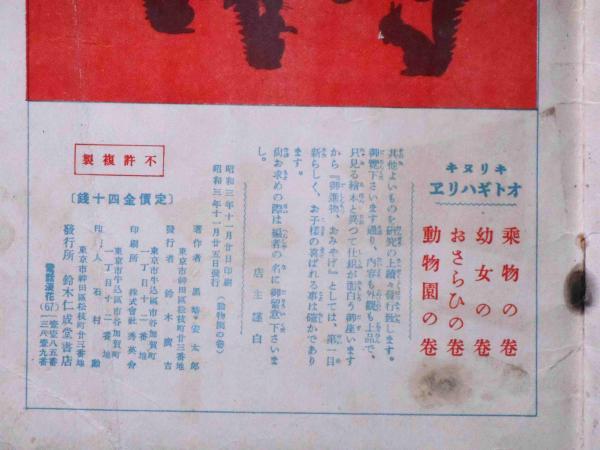 キリヌキ
オトギハリヱ
乘物の卷
幼女の卷
おさらひの卷
動物園の卷
其他よいものを研究の上續々發行致します。
御覽下さいます通り、内容も外觀も上品で、
只見る繪本と異つて仕組が面白う御座います
から『御進物、おみやげ』としては、第一目
新らしく、お子樣の喜ばれる事は確かであり
ます。
尙お求めの際は編者の名に御留意下さいま
し。
店主謹白
昭和三年十一月廿日印刷
昭和三年十一月廿五日發行
(動物園の卷)
著作者 黒崎安太郎
東京市神田區松枝町廿三番地
發行者 鈴木廣吉
東京市牛込區市谷加賀町
一丁目十二番地
印刷所 株式會社秀英舍
東京市牛込區市谷加賀町
一丁目十二番地
印刷人 石村勳
東京市神田區松枝町廿三番地
發行所 鈴木仁成堂書店
電話浪花(67)
一壹壹八五番
一三八壹九番
不許複製
〔定價金四十錢〕